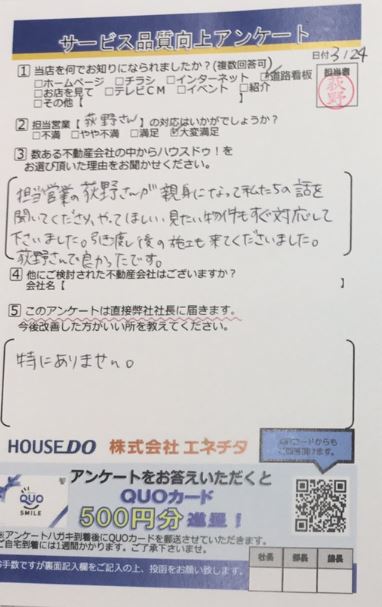 サービス品質向上アンケート
日付 3/24
1 当店を何でお知りになられましたか?(複数回答可)
□ホームページ □チラシ □インターネット ☑道路看板
□お店を見て □テレビCM □イベント □紹介
□その他【 】
担当者
荻野
2 担当営業【 荻野さん 】の対応はいかがでしょうか?
□不満 □やや不満 □満足 ☑大変満足
3 数ある不動産会社の中からハウスドゥ!を
お選び頂いた理由をお聞かせください。
担当営業の荻野さんが親身になって私たちの話を
聞いてくださり、やってほしい、見たい物件もすぐ対応して
下さいました。引き渡し後の施工も来てくださいました。
荻野さんで良かったです。
4 他にご検討された不動産会社はございますか?
会社名【 】
5 このアンケートは直接弊社社長に届きます。
今後改善した方がいい所を教えてください。
特にありません。
HOUSEDO 株式会社エネチタ
QRコードからも
ご回答頂けます。
QUO
SMILE
アンケートをお答えいただくと
QUOカード
500円分進呈!
※アンケートハガキ到着後にQUOカードを郵送させていただきます。
ご自宅到着には1週間かかります。ご了承下さいませ。
お手数ですが裏面記入欄をご記入の上、投函をお願い致します。
社長 部長 店長